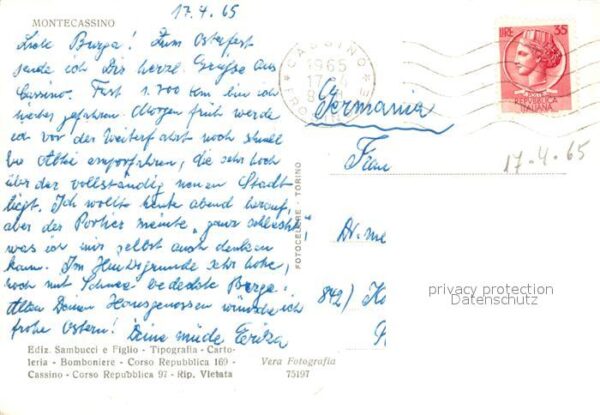 MONTECASSINO
17.4.65
Liebe Burga! Zum Osterfest
sende ich Dir herzl. Grüße aus
Cassino. Fast 1.700 km bin ich
hierher gefahren. Morgen früh werde
ich vor der Weiterfahrt noch schnell
zur Abtei emporfahren, die sehr hoch
über der vollständig neuen Stadt
liegt. Ich wollte heute abend herauf,
aber der Portier meinte „ganz schlecht"
was ich mir selbst auch denken
kann. Im Hintergrunde sehr hohe,
noch mit Schnee bedeckte Berge.
Allen Deinen Hausgenossen wünsche ich
frohe Ostern! Deine müde Erika
Ediz. Sambucci e Figlio - Tipografia - Carto-
leria - Bomboniere - Corso Repubblica 169 -
Cassino - Corso Repubblica 97 - Rip. Vietata
Vera Fotografia
75197
FOTOCELERE - TORINO
CASSINO
1965
17.4
LIRE 35
REPUBBLICA
ITALIANA
Germania
Frau
17-4-65
Dr. me
842)
privacy protection
Datenschutz